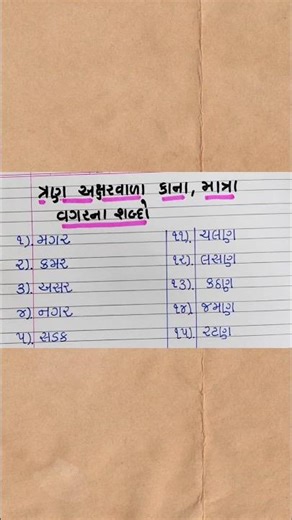 ત્રણ અક્ષરવાળા કાના, માત્રા
વગરના શબ્દો
૧). મગર
૨). કમર
૩). અસર
૪). નગર
૫). સડક
૧૧). ચલણ
૧૨). લસણ
૧૩). કઠણ
૧૪). જમણ
૧૫). રટણ